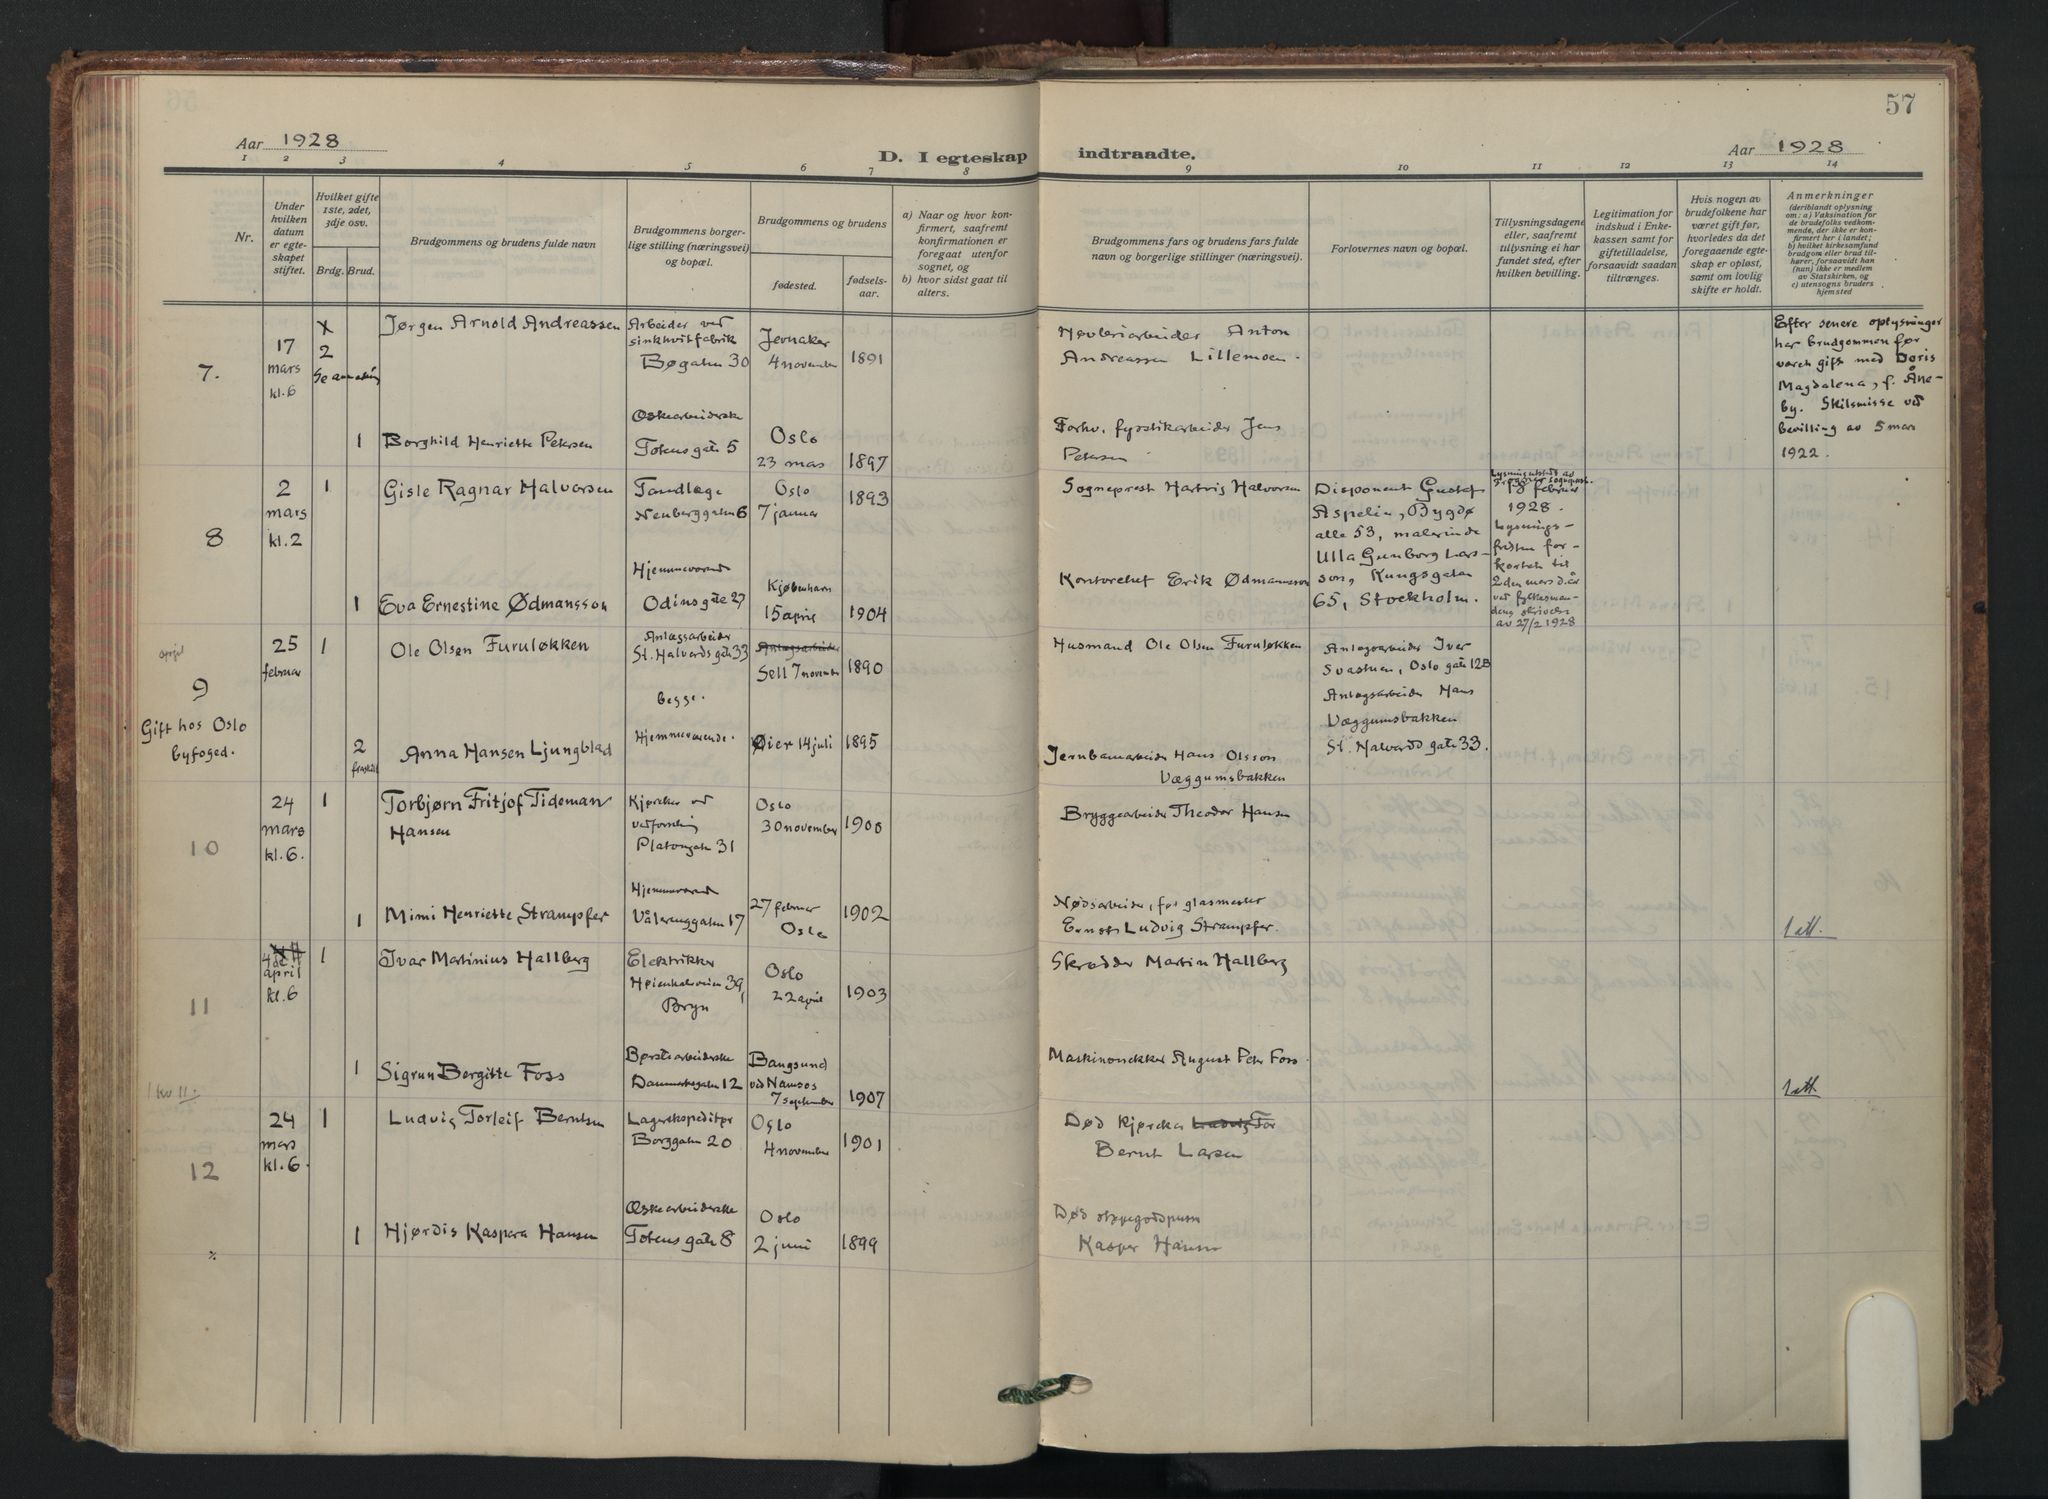 57
Aar 1928
D. I egteskap indtraadte.
Aar 1928
1 2 3 4 5 6 7 8 9 10 11 12 13 14
Nr.
Under hvilken datum er egteskapet stiftet.
Hvilket gifte 1ste, 2det, 3dje osv.
Brdg. Brud.
Brudgommens og brudens fulde navn
Brudgommens borgerlige stilling (næringsvei) og bopæl.
Brudgommens og brudens
fødested.
fødselsaar.
a) Naar og hvor konfirmert, saafremt konfirmationen er foregaat utenfor sognet, og
b) hvor sidst gaat til alters.
Brudgommens fars og brudens fars fulde navn og borgerlige stillinger (næringsvei).
Forlovernes navn og bopæl.
Tillysningsdagene eller, saafremt tillysning ei har fundet sted, efter hvilken bevilling.
Legitimation for indskud i Enkekassen samt for giftetilladelse, forsaavidt saadan tiltrænges.
Hvis nogen av brudefolkene har været gift før, hvorledes da det foregaaende egteskap er opløst, samt om lovlig skifte er holdt.
Anmerkninger
(deriblandt oplysning om: a) Vaksination for de brudefolks vedkommende, der ikke er konfirmert her i landet;
b) hvilket kirkesamfund brudgom eller brud tilhører, forsaavidt han (hun) ikke er medlem av Statskirken, og
c) utensogns bruders hjemsted
7.
17 mars kl. 6
2
Jørgen Arnold Andreassen
Arbeider ved sinkhvitfabrik
Bøgaten 30
Jevnaker
4 november
1891
Høvleriarbeider Anton
Andreassen Lillemoen.
Efter senere oplysninger
har brudgommen før
været gift med Doris
Magdalena, f. Åne-
by. Skilsmisse ved
bevilling av 5 mars
1922.
1
Borghild Henriette Petersen
Eskearbeiderske
Totens gate 5
Oslo
23 mars
1897
Forhv. fyrstikarbeider Jens
Petersen
8
2 mars kl. 2
1
Gisle Ragnar Halvorsen
Tandlæge
Neuberggaten 6
Oslo
7 januar
1893
Sogneprest Hartvig Halvorsen
Disponent Gustaf
Aspelin, Bygdø
alle 53, malerinde
Ulla Gunborg Lars-
son, Kungsgatan
65, Stockholm.
18 februar
1928.
Lysnings-
fristen for-
kortet til
2den mars d.år
ved fylkesman-
dens skrivelse
av 27/2 1928
1
Eva Ernestine Ødmansson
Hjemmeværende
Odins gate 27
Kjøbenhavn
15 april
1904
Kontorchef Erik Ødmansson
9
Gift hos Oslo
byfoged.
25 februar
1
Ole Olsen Furuløkken
Anlægsarbeider
St. Halvards gate 33
begge.
Anlægsarbeider
Sell 7 november
1890
Husmand Ole Olsen Furuløkken
Anlægsarbeider Iver
Svastuen, Oslo gate 12B
Anlægsarbeider Hans
Væggumsbakken
St. Halvards gate 33.
2
fraskilt
Anna Hansen Ljungblad
Hjemmeværende.
Øier 14 juli
1895
Jernbanearbeider Hans Olsson
Væggumsbakken
10
24 mars kl. 6.
1
Torbjørn Fritjof Tideman
Hansen
Kjørekar ved
vedforsyning
Platousgaten 31
Oslo
30 november
1900
Bryggearbeider Theodor Hansen
1
Mimi Henriette Strampfer
Hjemmeværende
Vålerenggaten 17
27 februar
Oslo
1902
Nødsarbeider, før glasmester
Ernst Ludvig Strampfer.
1 att.
11
4de april kl. 6
1
Ivar Martinius Hallberg
Elektriker
Høienhalveien 39,
Bryn
Oslo
22 april
1903
Skrædder Martin Hallberg
1
Sigrun Bergitte Foss
Børstearbeiderske
Danmarksgaten 12
Bangsund
ved Namsos
7 september
1907
August Peter Foss.
1 att.
12
24 mars kl. 6.
1
Ludvig Torleif Berntsen
Lagerekspeditør
Borggaten 20
Oslo
4 november
1901
Død kjørekar Ludvig Tor
Bernt Larsen
1
Hjørdis Kaspara Hansen
Eskearbeiderske
Totens gate 8
Oslo
2 juni
1899
Død
Kasper Hansen